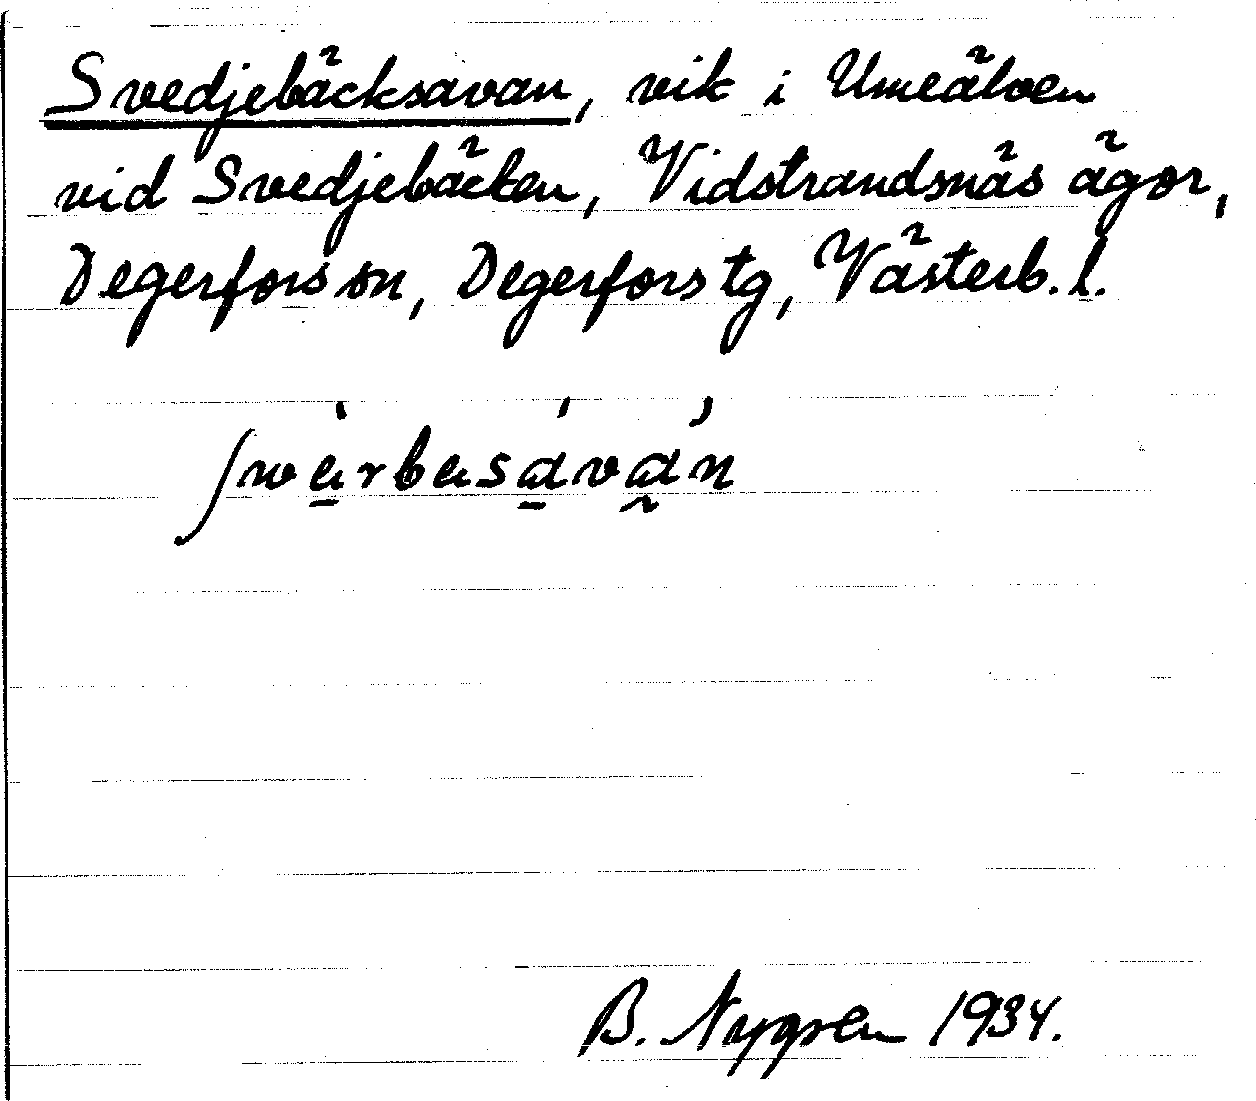 Svedjebäcksavan, vik i Umeälven
vid Svedjebäcken, Vidstrandsnäs ägor,
Degerfors sn, Degerfors tg, Västerb. l.
B. Nygren 1934.